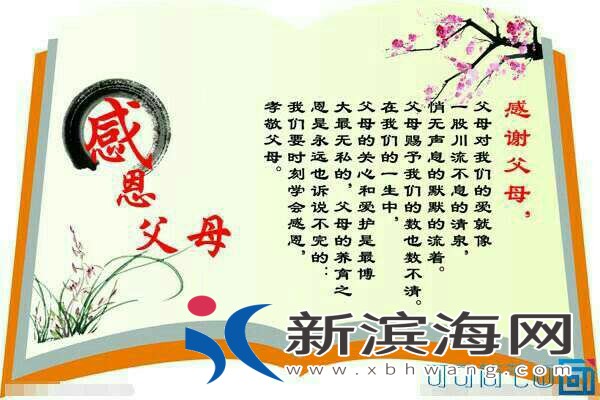 感恩父母
感谢父母，
父母对我们的爱就像
一股川流不息的清泉，
悄无声息的默默的流着。
父母赐予我们的数也数不清。
在我们的一生中，
父母的关心和爱护是最博
大最无私的，父母的养育之
恩是永远也诉说不完的：
我们要时刻学会感恩，
孝敬父母。
新滨海网
www.xbhwang.com